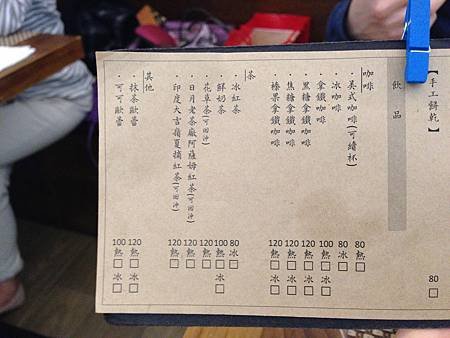 【手工餅乾】 80 □
飲品
咖啡
·美式咖啡(可續杯) 80 熱□
·冰咖啡 80 冰□
·拿鐵咖啡 100 熱□ 冰□
·黑糖拿鐵咖啡 120 熱□ 冰□
·焦糖拿鐵咖啡 120 熱□ 冰□
·榛果拿鐵咖啡 120 熱□ 冰□
茶
·冰紅茶 80 冰□
·鮮奶茶 100 熱□ 冰□
·花草茶(可回沖) 120 熱□
·日月老茶廠阿薩姆紅茶(可回沖) 120 熱□
·印度大吉嶺夏摘紅茶(可回沖) 120 熱□
其他
·抹茶歐蕾 120 熱□ 冰□
·可可歐蕾 100 熱□ 冰□